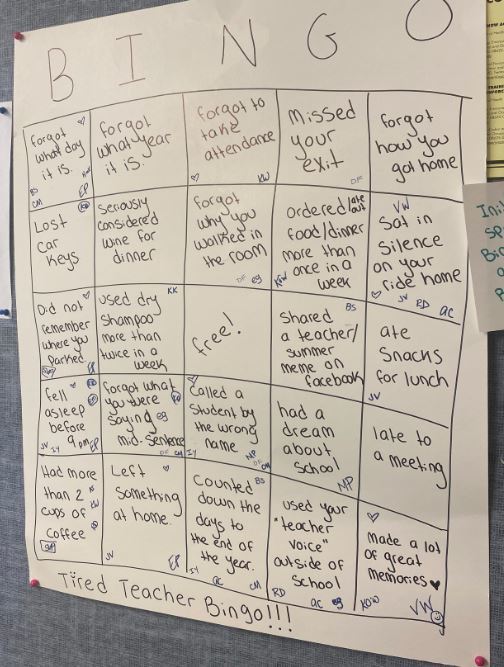 BINGO
forgot
what day
it is.
forgot
what year
it is.
forgot to
take
attendance
KW
Missed
your
exit
DF
forgot
how you
got home
CM
EP
Lost
car
keys
seriously
considered
wine for
dinner
forgot
why you
walked in
the room
DF
ordered/ate out
food/dinner
more than
once in a
week
KW
VW
Sat in
silence
on your
ride home
JV RD AC
Did not
remember
where you
parked.
KK
used dry
shampoo
more than
twice in a
week
free!
BS
Shared
a teacher/
summer
meme on
facebook
ate
snacks
for lunch
JV
fell
asleep
before
9 pm
JV IY EP
forgot what
you were
saying
mid-sentence
DF CM
Called a
student by
the wrong
name
IY
MP
DF CM
had a
dream
about
school
MP
late to
a meeting
Had more
than 2
cups of
coffee
Left
something
at home.
JV
EP
Counted BS
down the
days to
the end of
the year.
IY AC CM
used your
"teacher
voice"
outside of
school
RD AC
made a lot
of great
memories
KW VW
Tired Teacher Bingo!!!